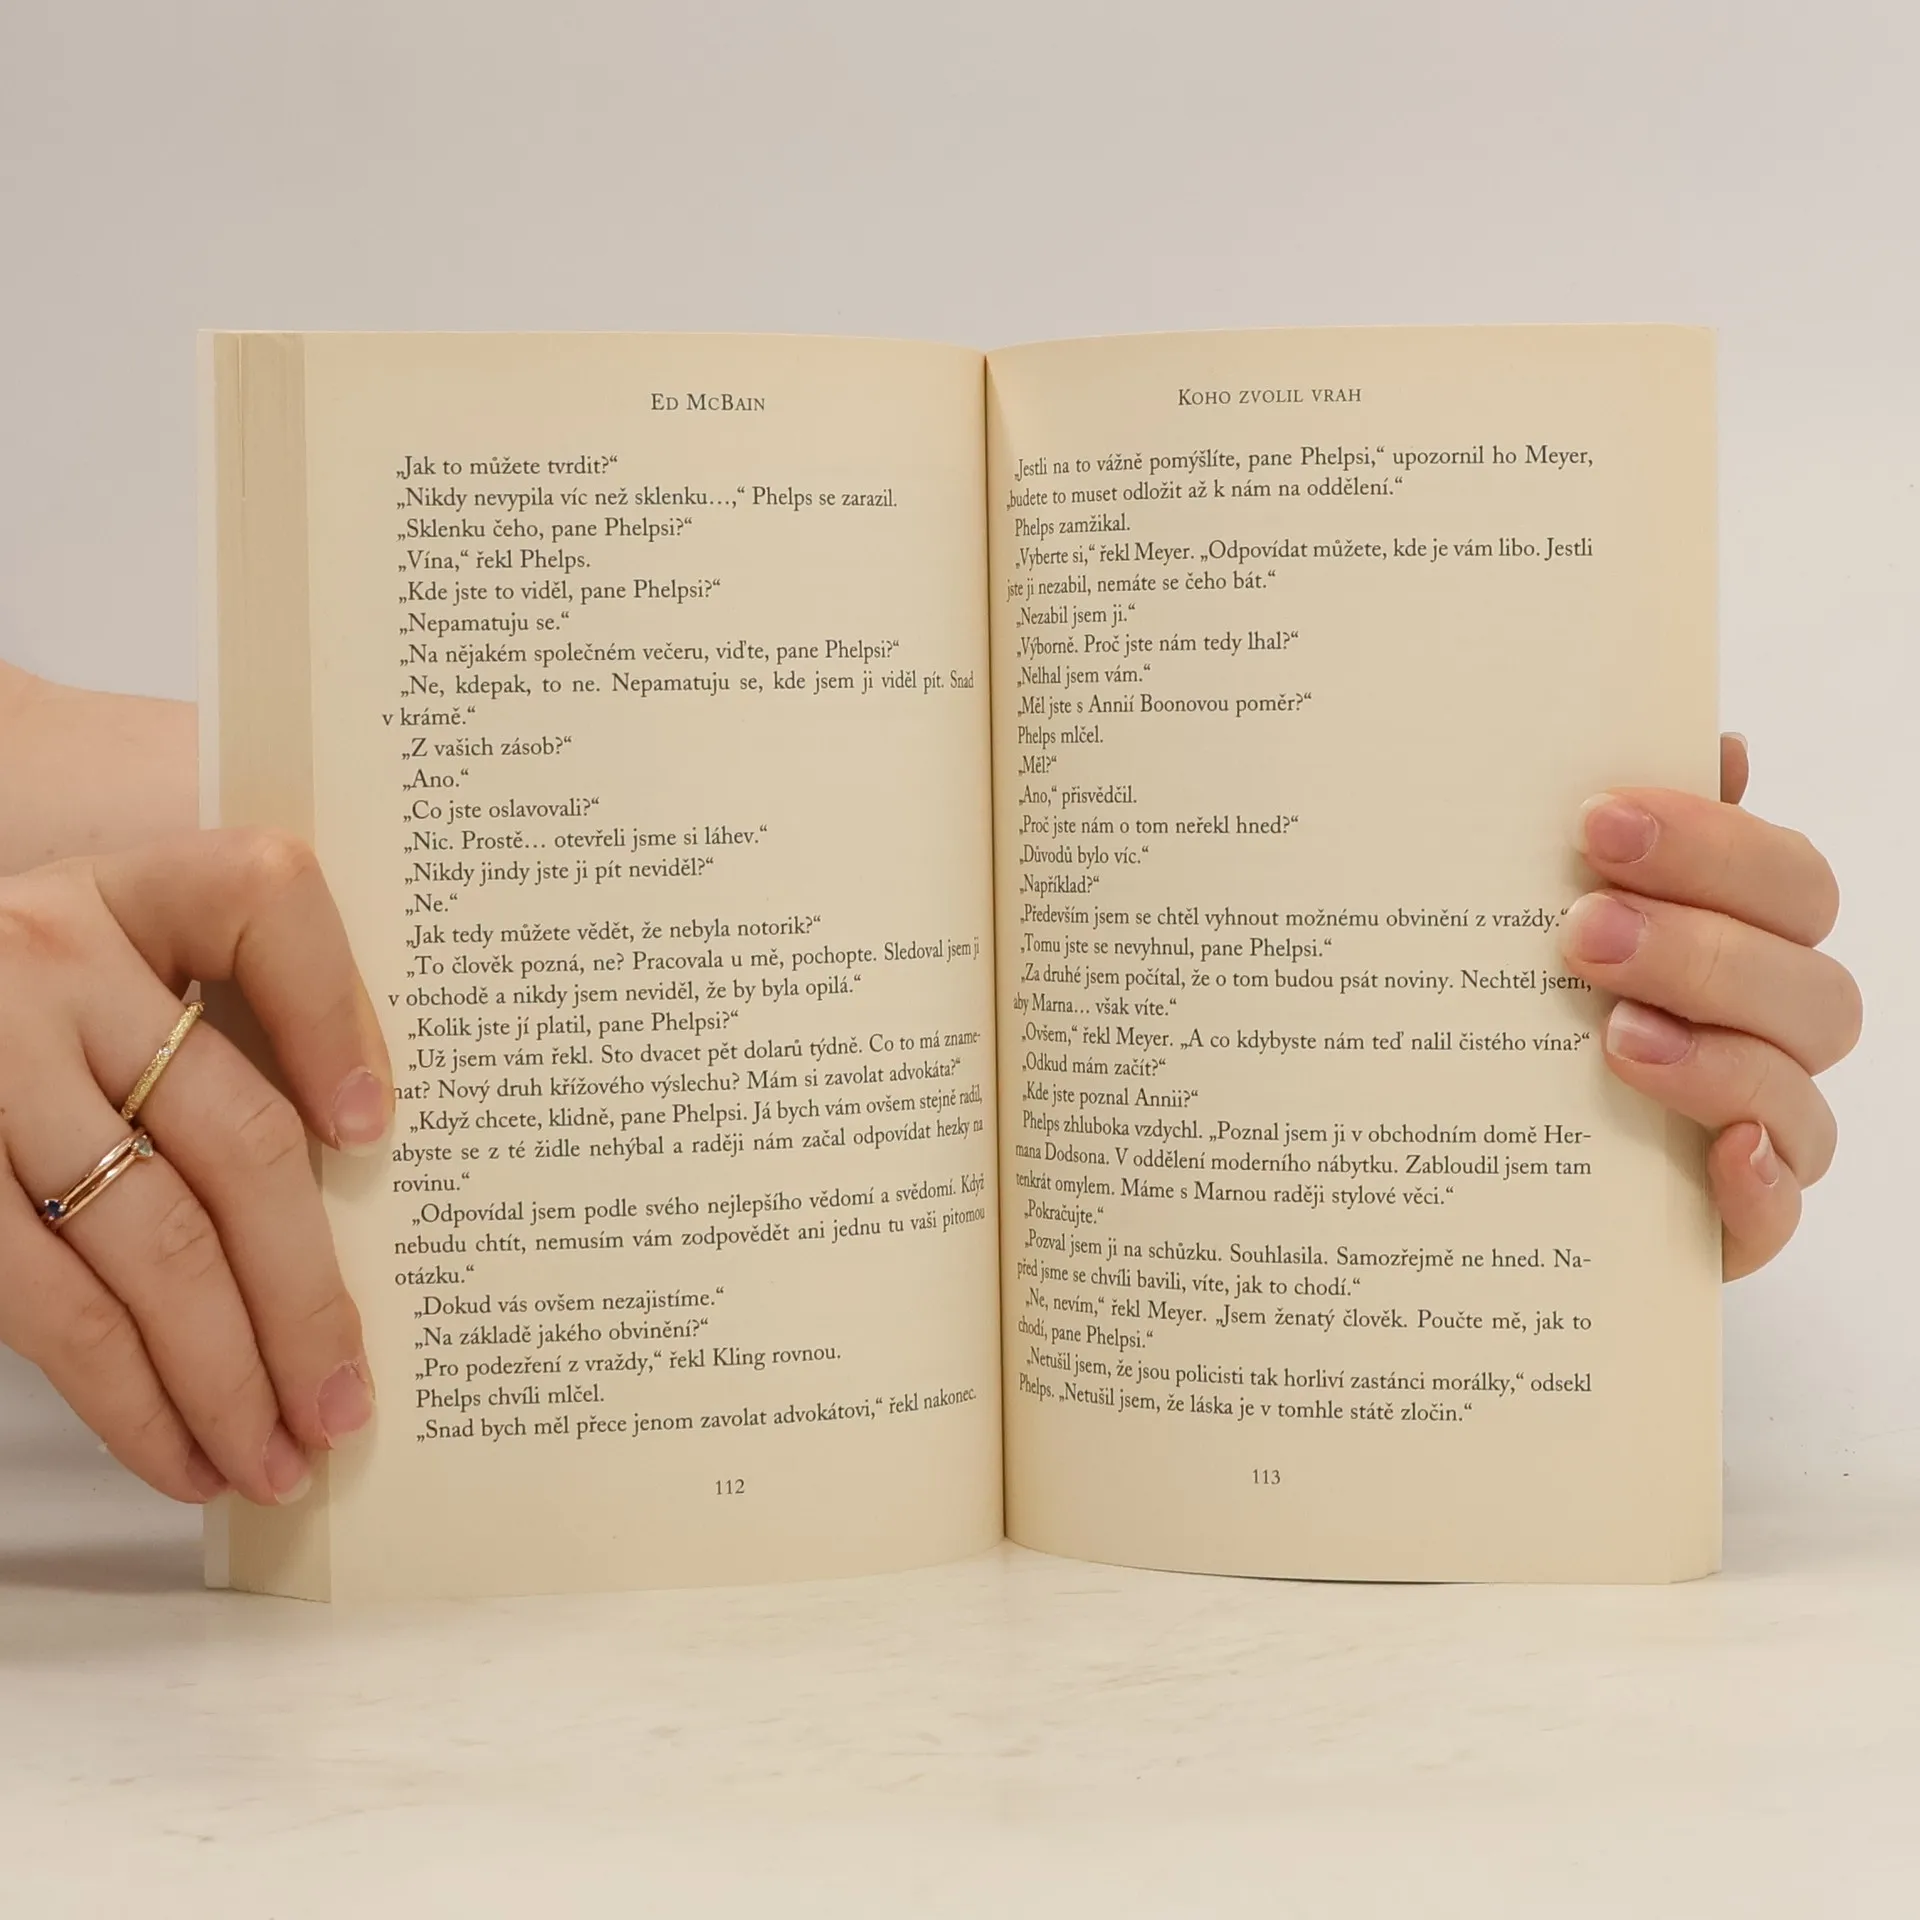 ED MCBAIN
„Jak to můžete tvrdit?“
„Nikdy nevypila víc než sklenku…,“ Phelps se zarazil.
„Sklenku čeho, pane Phelpsi?“
„Vína,“ řekl Phelps.
„Kde jste to viděl, pane Phelpsi?“
„Nepamatuju se.“
„Na nějakém společném večeru, viďte, pane Phelpsi?“
„Ne, kdepak, to ne. Nepamatuju se, kde jsem ji viděl pít. Snad
v krámě.“
„Z vašich zásob?“
„Ano.“
„Co jste oslavovali?“
„Nic. Prostě… otevřeli jsme si láhev.“
„Nikdy jindy jste ji pít neviděl?“
„Ne.“
„Jak tedy můžete vědět, že nebyla notorik?“
„To člověk pozná, ne? Pracovala u mě, pochopte. Sledoval jsem ji
v obchodě a nikdy jsem neviděl, že by byla opilá.“
„Kolik jste jí platil, pane Phelpsi?“
„Už jsem vám řekl. Sto dvacet pět dolarů týdně. Co to má zname-
nat? Nový druh křížového výslechu? Mám si zavolat advokáta?“
„Když chcete, klidně, pane Phelpsi. Já bych vám ovšem stejně radil,
abyste se z té židle nehýbal a raději nám začal odpovídat hezky na
rovinu.“
„Odpovídal jsem podle svého nejlepšího vědomí a svědomí. Když
nebudu chtít, nemusím vám zodpovědět ani jednu tu vaši pitomou
otázku.“
„Dokud vás ovšem nezajistíme.“
„Na základě jakého obvinění?“
„Pro podezření z vraždy,“ řekl Kling rovnou.
Phelps chvíli mlčel.
„Snad bych měl přece jenom zavolat advokátovi,“ řekl nakonec.
112
KOHO ZVOLIL VRAH
„Jestli na to vážně pomýšlíte, pane Phelpsi,“ upozornil ho Meyer,
„budete to muset odložit až k nám na oddělení.“
Phelps zamžikal.
„Vyberte si,“ řekl Meyer. „Odpovídat můžete, kde je vám libo. Jestli
jste ji nezabil, nemáte se čeho bát.“
„Nezabil jsem ji.“
„Výborně. Proč jste nám tedy lhal?“
„Nelhal jsem vám.“
„Měl jste s Annií Boonovou poměr?“
Phelps mlčel.
„Měl?“
„Ano,“ přisvědčil.
„Proč jste nám o tom neřekl hned?“
„Důvodů bylo víc.“
„Například?“
„Především jsem se chtěl vyhnout možnému obvinění z vraždy.“
„Tomu jste se nevyhnul, pane Phelpsi.“
„Za druhé jsem počítal, že o tom budou psát noviny. Nechtěl jsem,
aby Marna… však víte.“
„Ovšem,“ řekl Meyer. „A co kdybyste nám teď nalil čistého vína?“
„Odkud mám začít?“
„Kde jste poznal Annii?“
Phelps zhluboka vzdychl. „Poznal jsem ji v obchodním domě Her-
mana Dodsona. V oddělení moderního nábytku. Zabloudil jsem tam
tenkrát omylem. Máme s Marnou raději stylové věci.“
„Pokračujte.“
„Pozval jsem ji na schůzku. Souhlasila. Samozřejmě ne hned. Na-
před jsme se chvíli bavili, víte, jak to chodí.“
„Ne, nevím,“ řekl Meyer. „Jsem ženatý člověk. Poučte mě, jak to
chodí, pane Phelpsi.“
„Netušil jsem, že jsou policisti tak horliví zastánci morálky,“ odsekl
Phelps. „Netušil jsem, že láska je v tomhle státě zločin.“
113